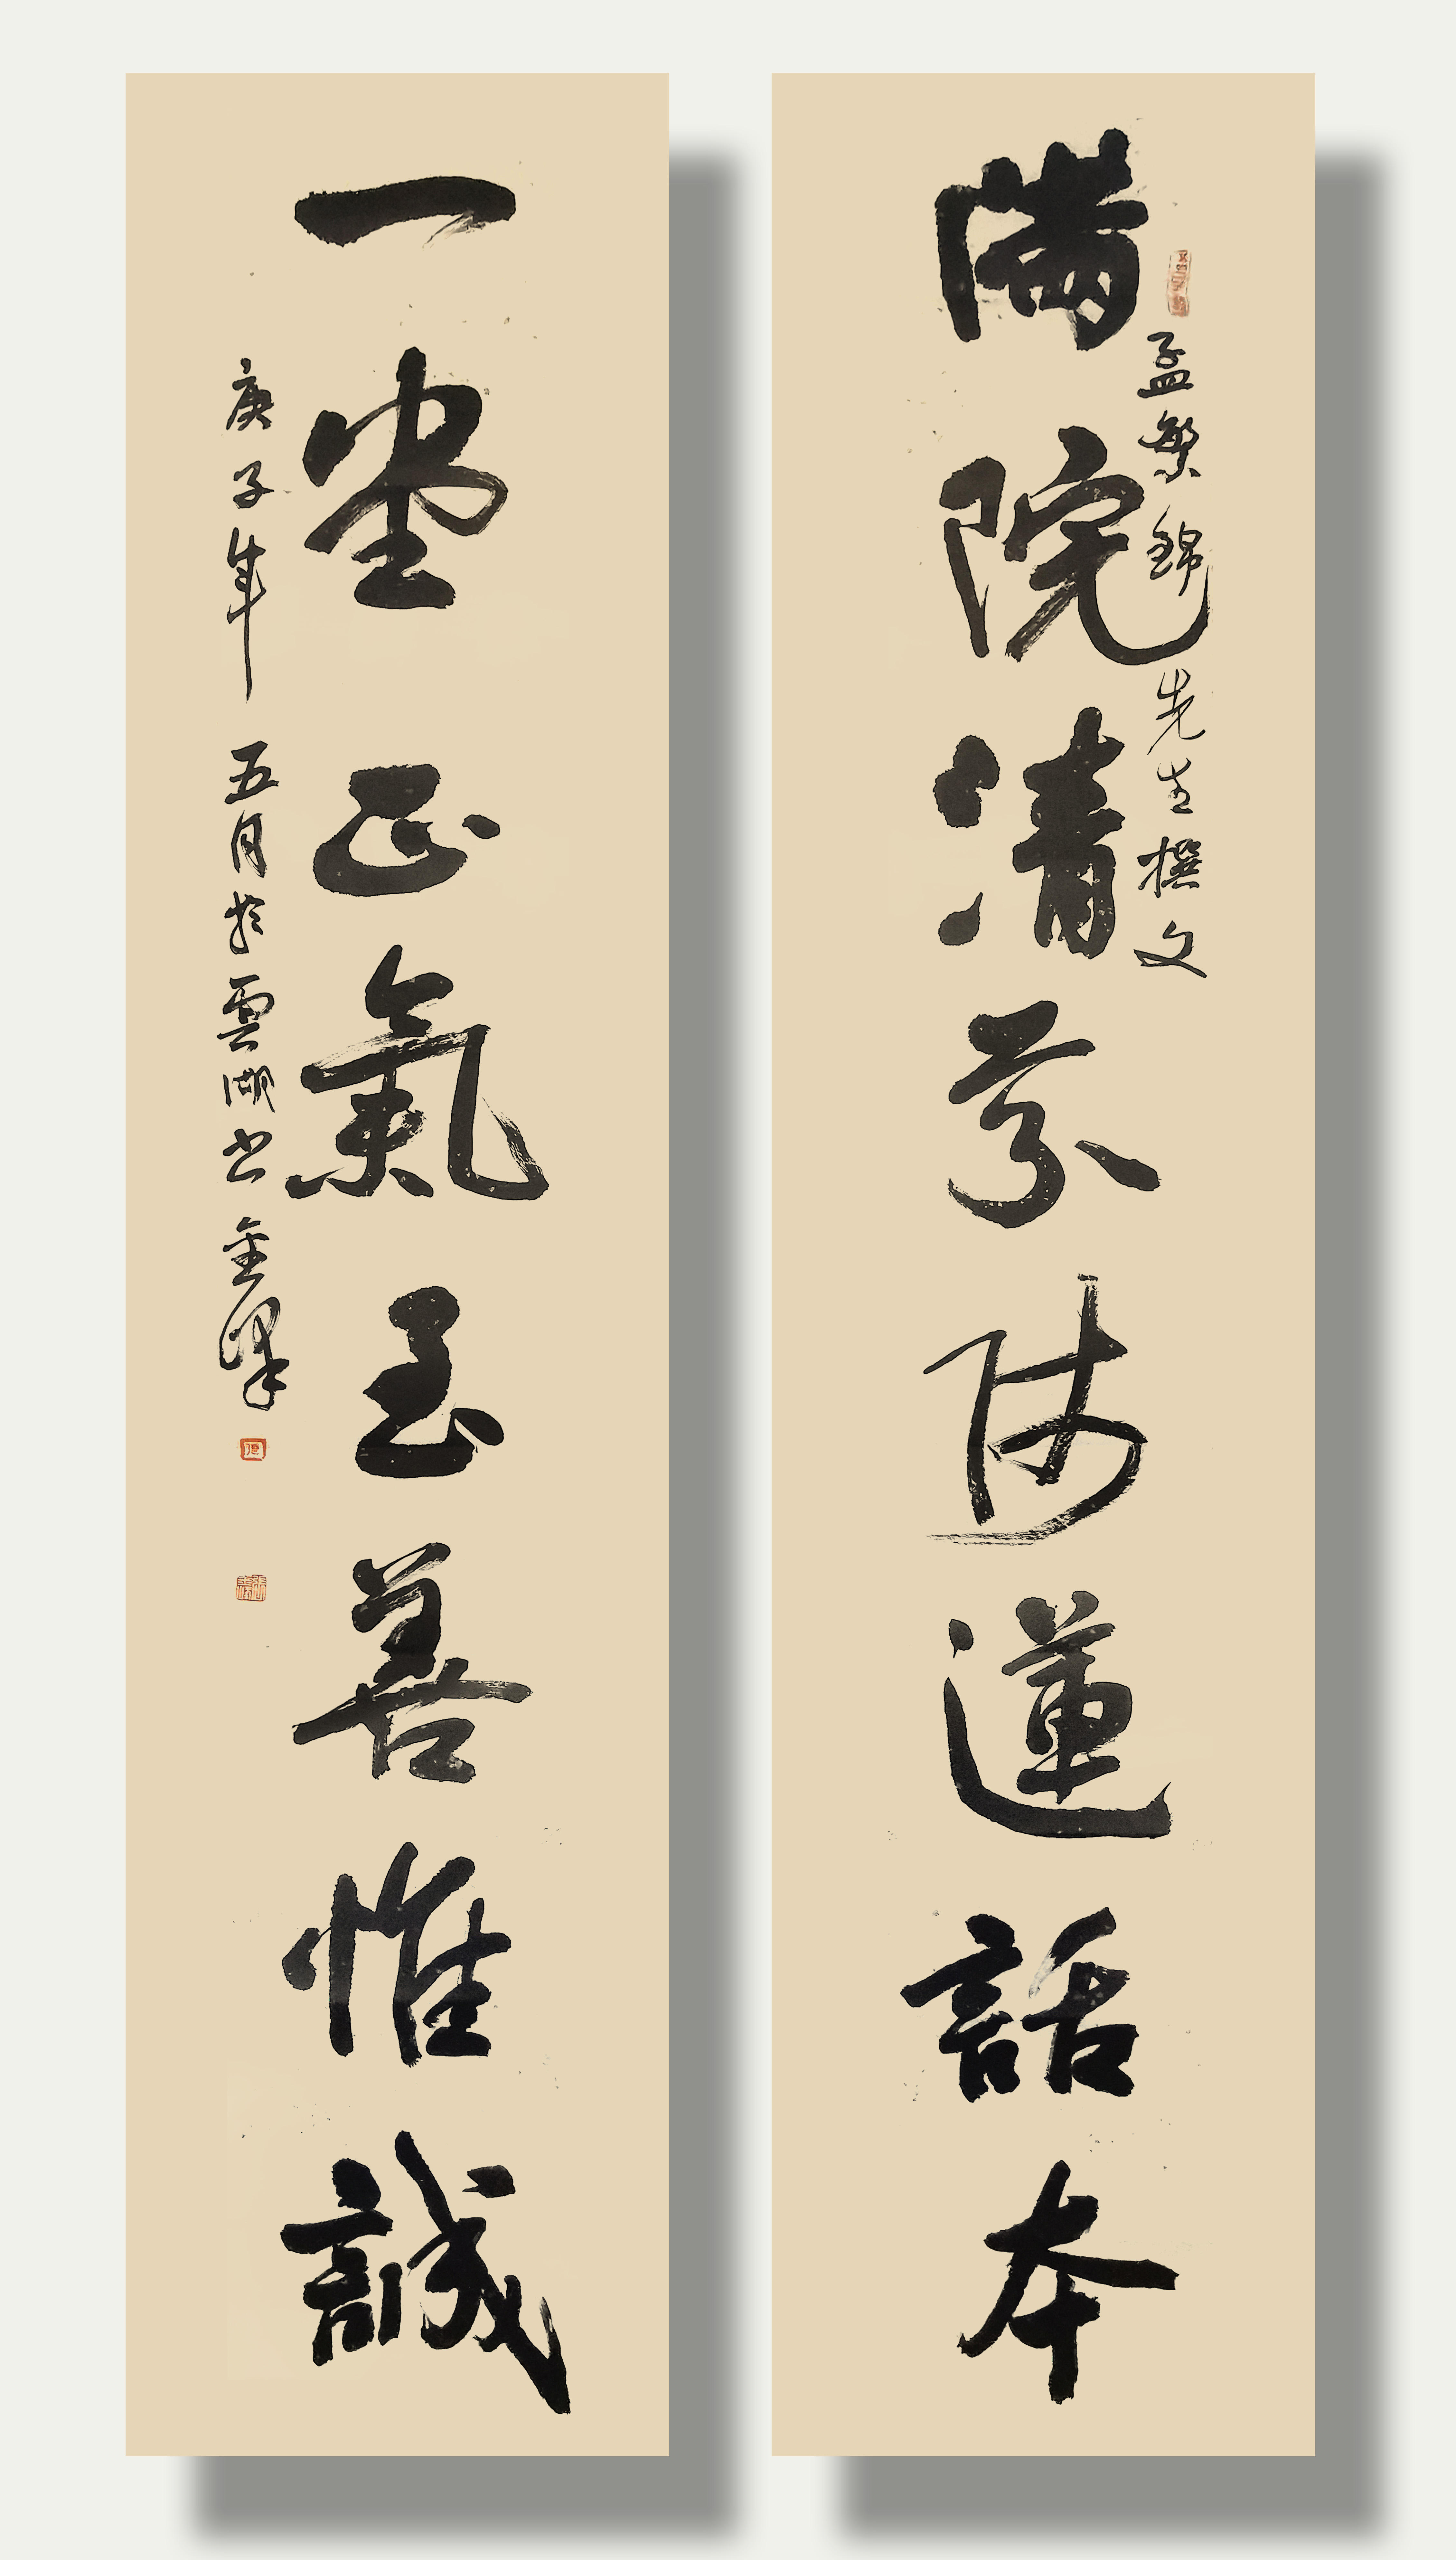 孟繁錦先生撰文
滿院清芬階蓮話本
一堂正氣至善惟誠
庚子年五月於雲湖書金峰